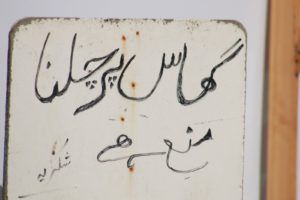 گھاس پر چلنا
منع ہے
شکریہ